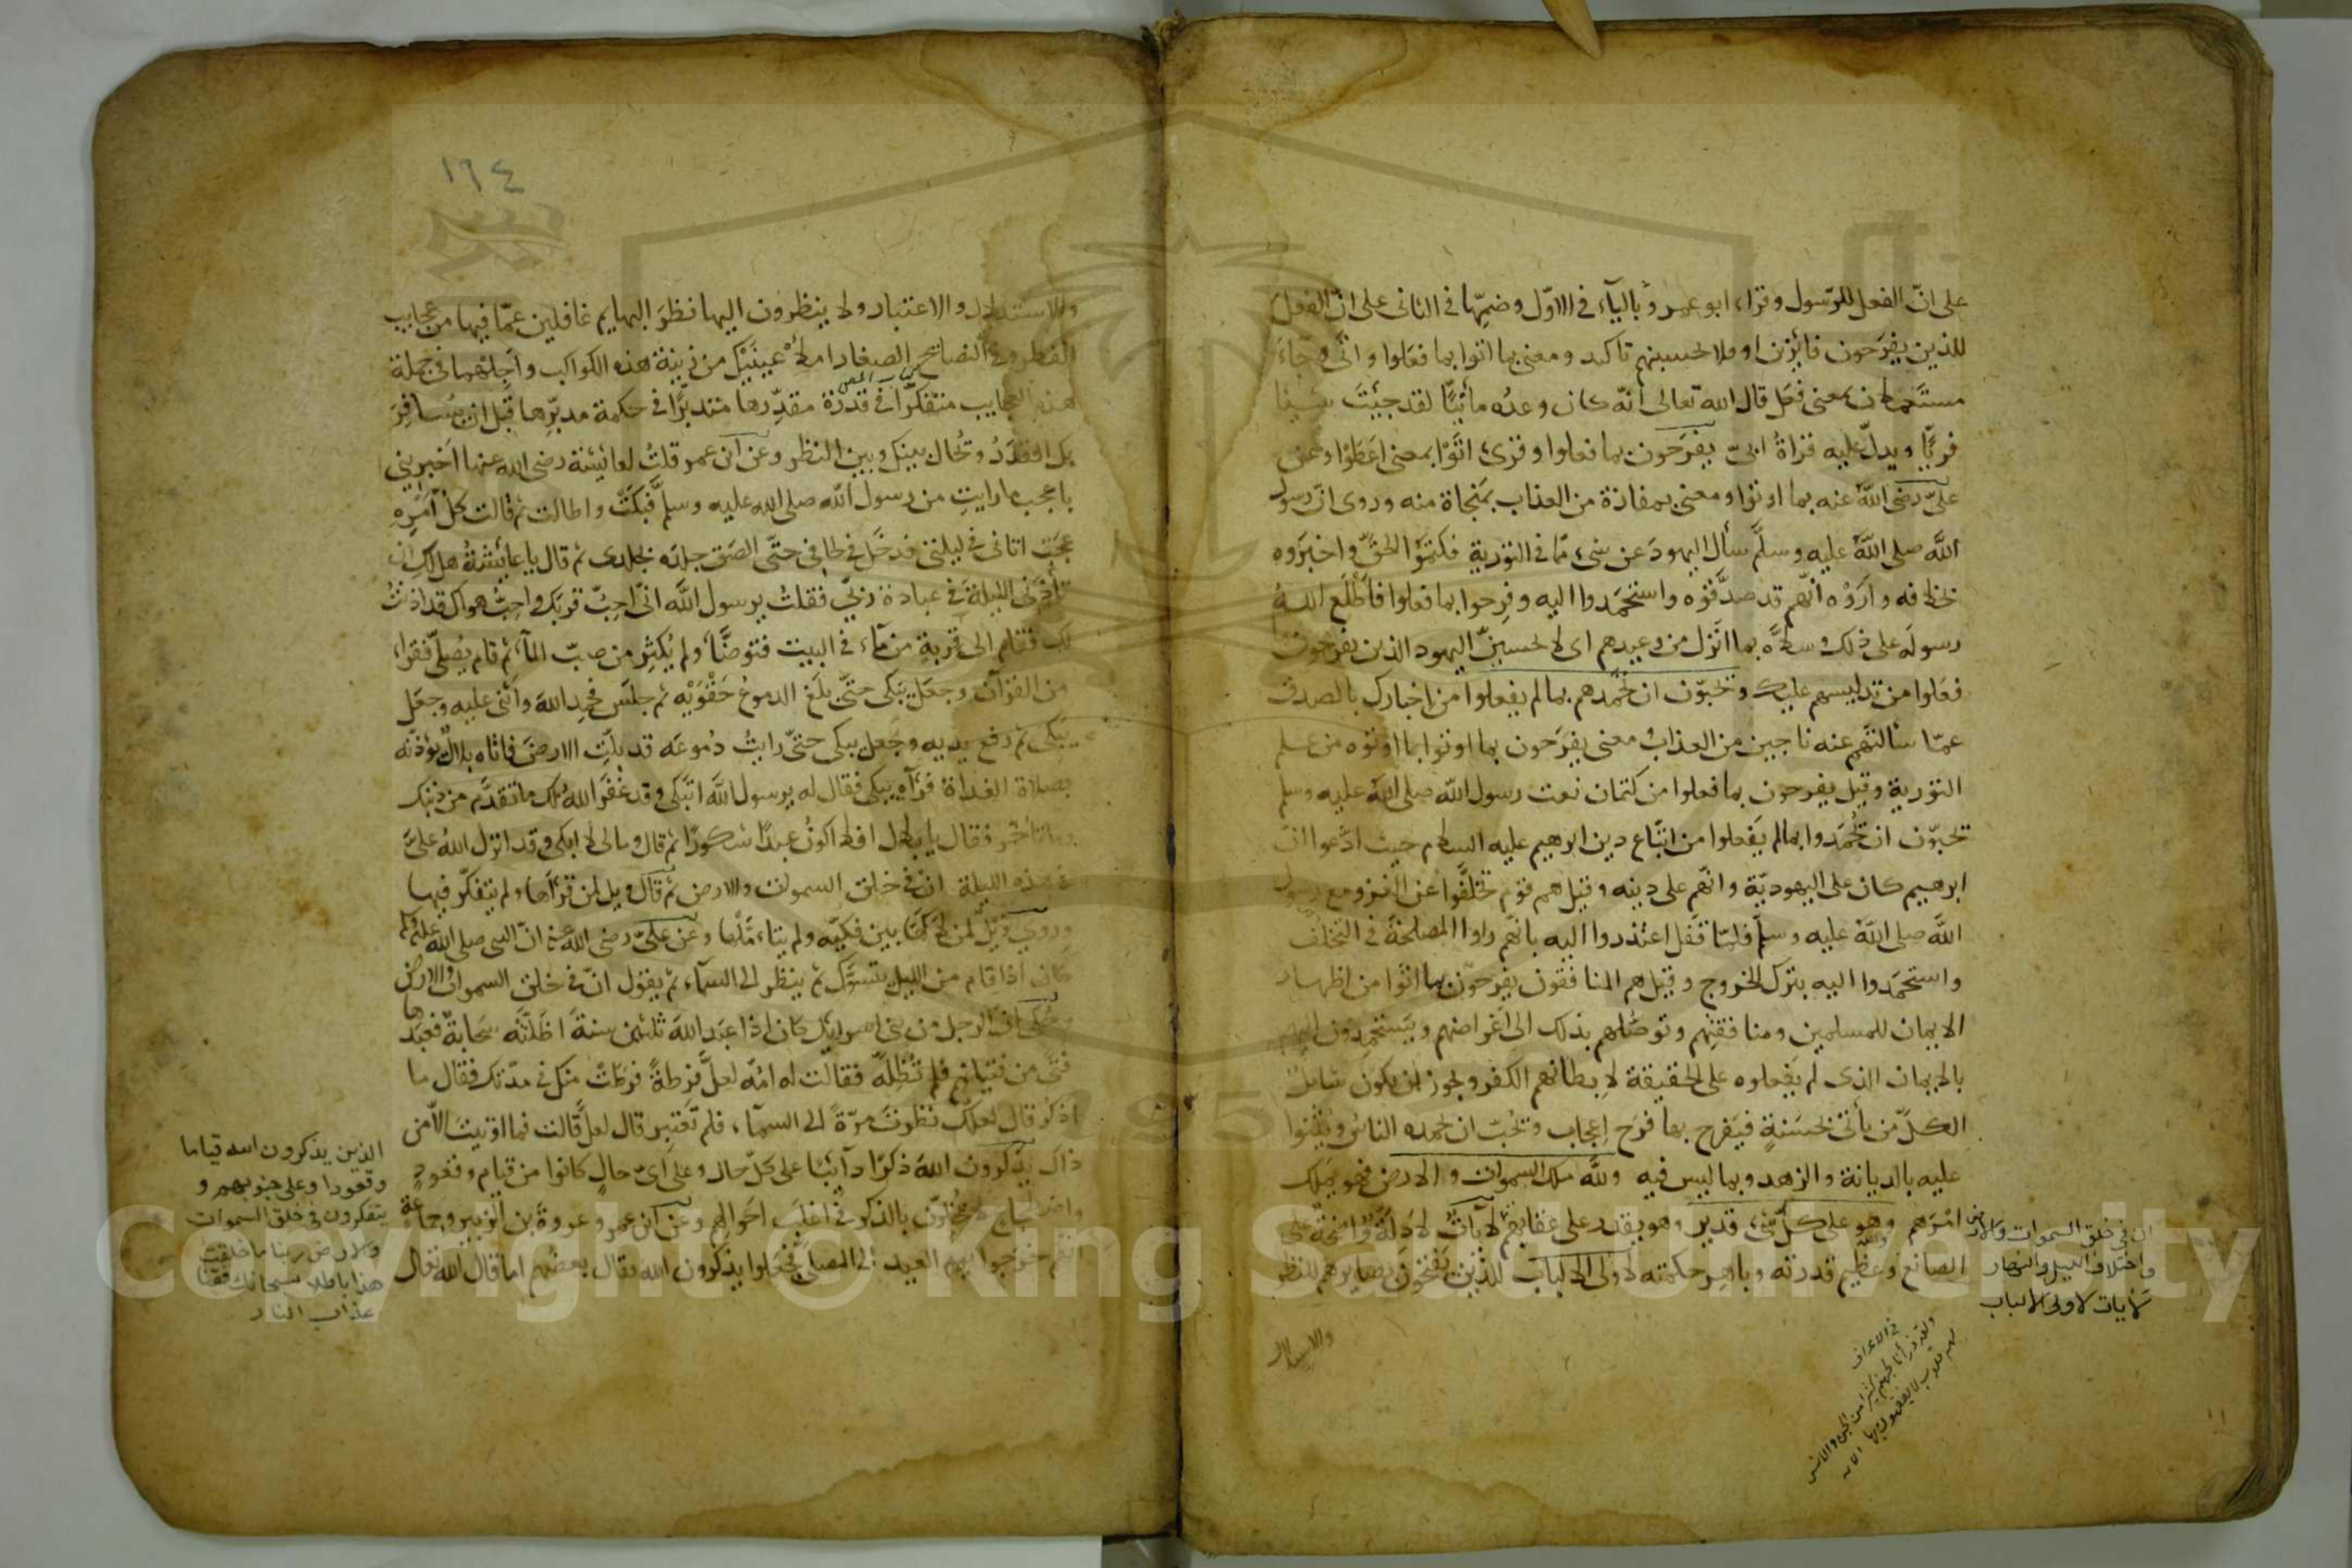 على انّ الفعل للرّسول وقراء ابو عمرو بالياء في الاوّل وضمّها في الثانى على انّ الفعل
للذين يفرَحون فابرزن او فلا تحسبنهم تاكيد ومعنى بما اتوا بما فعلوا واتى وجاء
مستعملان بمعنى فعَل قال الله تعالى انّه كان وعدُه ماتيّا لقد جئت شيئا
فريّا ويدلّ عليه قراةُ ابىّ يفرَحون بما فعلوا وقرئ اتَوْا بمعنى اعطَوْا وعن
علىّ رضى الله عنه بما اوتوا ومعنى بمفازة من العذاب بمَنجاة منه وروى انّ رسول
الله صلى الله عليه وسلّم سأل اليهودَ عن شىء ممّا في التورية فكتموا الحقّ واخبرَوه
بخلافه وارَوْه انّهم قد صدَّقوه واستحمَدوا اليه وفرِحوا بما فعلوا فاَطْلَع اللهُ
رسولَه على ذلك وسلاّه بما انزل من وعيدهم اى لا تحسبنّ اليهود الذين يفرحون
فعَلوا من تدليسهم عليك وتحبّون ان تحمَدهم بما لم يفعلوا من اخبارك بالصدق
عمّا سألتهم عنه ناجين من العذاب ومعنى يفرَحون بما اوتوا بما اوتوه من علم
التورية وقيل يفرحون بما فعلوا من كتمان نعت رسول الله صلى الله عليه وسلم
تحبّون ان تحُمَدوا بما لم يَفعلوا من اتّباع دين ابرهيم عليه السلام حيث ادّعوا انّ
ابرهيم كان على اليهوديّة وانّهم على دينه وقيل هم قوم تخلّفوا عن الغزو مع رسول
الله صلى الله عليه وسلّم فلمّا قفَل اعتذروا اليه بانّهم راوا المصلحةَ في التخلّف
واستحمَدوا اليه بترك الخروج وقيل هم المنافقون يفرحون بما اتوا من اظهار
الايمان للمسلمين ومنافقتِهم وتوصّلهم بذلك الى اغراضهم ويستحمدون اليهم
بالايمان الذى لم يفعلوه على الحقيقة لابطانهم الكفر ويجوز ان يكون شاملا
لكلّ من يأتى بحَسَنةٍ فيَفرح بها فرَح اعجاب ويُحبّ ان يحمده الناس ويُثنوا
عليه بالديانة والزهد وبما ليس فيه ولله ملك السموات والارض فهو يملك
امرَهم وهو على كلّ شىء قدير وهو يقدر على عقابهم لآياتٍ لادلّة واضحة على
الصانع وعظيم قدرته وباهر حكمته لاولى الالباب للذين يفتحون بصايرهم للنظر
والاستدلال
ان في خلق السموات والارض
واختلاف الليل والنهار
لآيات لاولى الالباب
في الاعراف
ولقد ذرأنا لجهنم كثيرا من الجن والانس
لهم قلوب لا يفقهون بها الاية
١٦٤
والاستدلال والاعتبار ولا ينظرون اليها نظرَ البهايم غافلين عمّا فيها من عجايب
الفطر وفي النصايح الصغار املأْ عينَيْك من زينة هذه الكواكب واَجِلْهما في جملة
هذه العجايب متفكّرًا في قدرة مقدّرها متدبّرًا في حكمة مدبّرها قبل ان يُسافِرَ
بك القدَرُ وتُحال بينك وبين النظر وعن ابن عمر قلتُ لعائشة رضى الله عنها اخبرينى
باعجب ما رايتِ من رسول الله صلى الله عليه وسلّم فبكَتْ واطالت ثم قالت كلّ اَمْرِهِ
عجَب اتانى في ليلتى فدخَل في لحافى حتّى الصَق جلدَه بجلدى ثم قال يا عايشةُ هل لكِ ان
تأذنى الليلةَ في عبادة ربّى فقلت يرسول الله انّى احبّ قربَك واحبُّ هواك قد اذنتُ
لك فقام الى قربةٍ من مآء في البيت فتوضّأ ولم يُكثِر من صبّ المآء ثم قام يُصلّى فقراء
من القرآن وجعَل يَبكى حتّى بلَغ الدموعُ حَقْوَيْه ثم جلَس فحمِد اللهَ واَثنى عليه وجعَل
يَبكى ثم رفع يديه وجعل يبكى حتّى رايتُ دُموعَه قد بلّتِ الارضَ فاتاه بلالٌ يؤذنه
بصلاة الغداة فرآه يبكى فقال له يرسول الله اتبكى وقد غفَر الله لك ما تقدّم من ذنبك
وما تأخّر فقال يا بلال افلا اكونُ عبدًا شكورًا ثم قال وما لى لا ابكى وقد انزل اللهُ علىّ
في هذه الليلة انّ في خلق السموات والارض ثم قال ويل لمن قرأها ولم يتفكّر فيها
وروى ويلٌ لمن لاكَها بين فكّيه ولم يتأمّلْها وعن علىّ رضى الله عنه انّ النبى صلى الله عليه وسلم
كان اذا قام من الليل يتسوّك ثم ينظر الى السمآء ثم يقول انّ في خلق السموات والارض
وحُكى انّ الرجل من بنى اسرايئل كان اذا عبَد اللهَ ثلثين سنةً اظلّته سَحابةٌ فعبَدها
فتىً من فتيانهم فلم تُظِلّه فقالت له امّه لعلّ فرطةً فرَطَتْ منك في مدّتك فقال ما
اذكُر قال لعلّك نظرتَ مرّةً الى السمآء فلم تَعتبِر قال لعلّ قالت فما اوتيتَ الاّ من
ذاك يذكرون اللهَ ذكرًا دآيئبًا على كلّ حال وعلى اىّ حالٍ كانوا من قيام وقعود
واضطجاع لا يُخلّون بالذكر في اغلَب احوالهم وعن ابن عمر وعروة بن الزبير وجماعة
انهم خرَجوا يوم العيد الى المصلّى فجعلوا يذكرون الله فقال بعضُهم اما قال الله تعالى
الذين يذكرون الله قياما
وقعودا وعلى جنوبهم و
يتفكرون في خلق السموات
والارض ربنا ما خلقت
هذا باطلا سبحانك فقنا
عذاب النار
Copyright © King Saud University
195